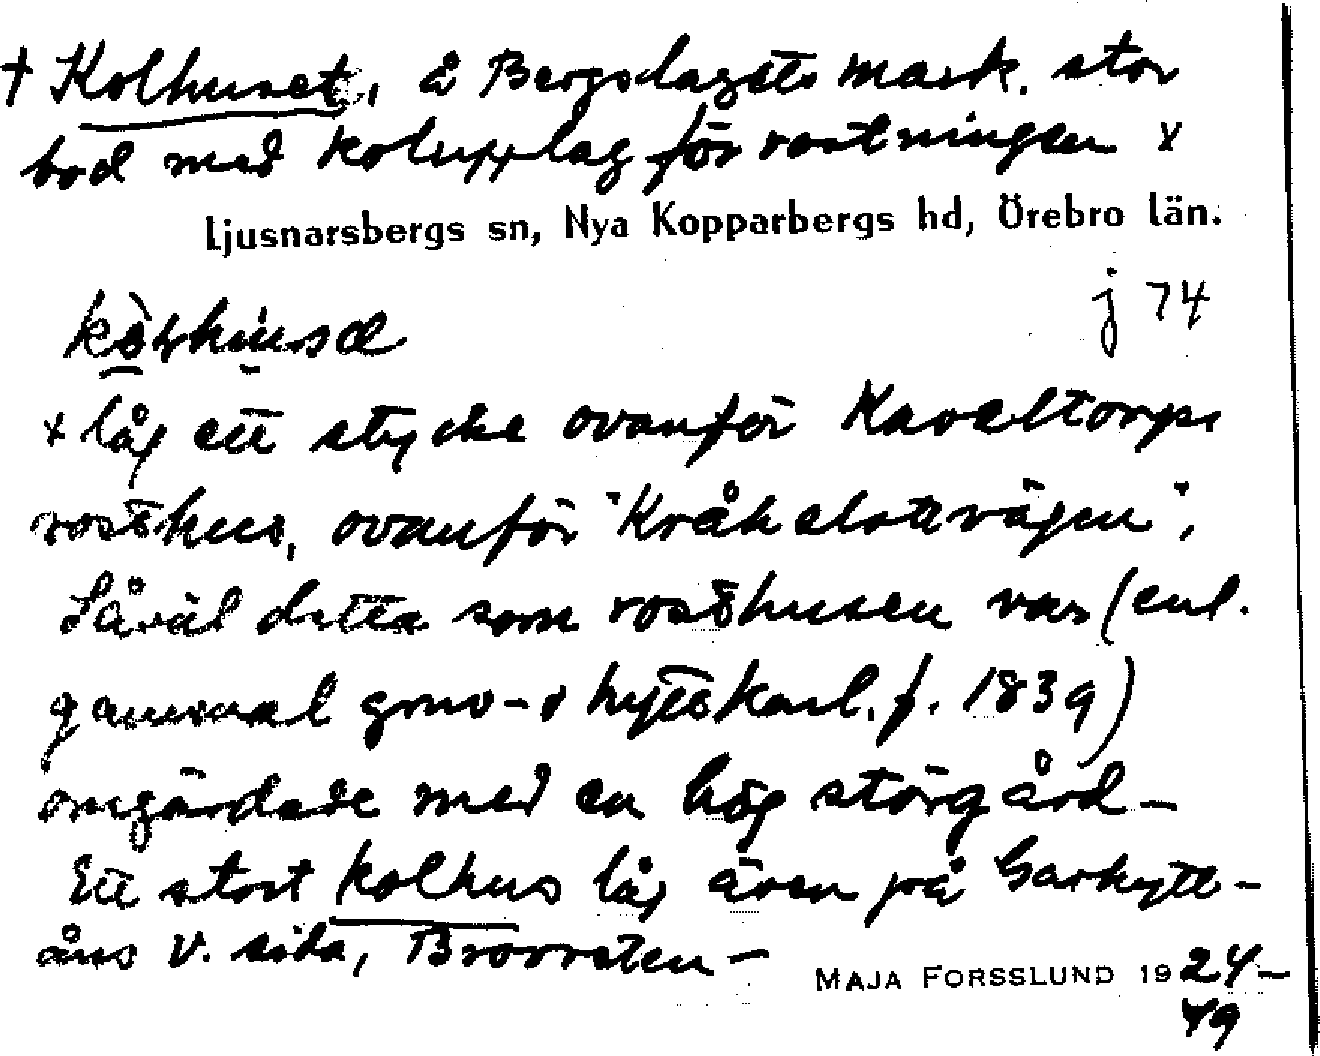 † Kolhuset, å Bergslagets mark. stor
bod med kolupplag för rostningen x
Ljusnarsbergs sn, Nya Kopparbergs hd, Örebro län.
j 74
x låg ett stycke ovanför Kaveltorps
rosthus, ovanför "Kråkslottsvägen".
Såväl detta som rosthusen var (enl.
gammal gruv- o hyttkarl. f. 1839)
omgärdade med en hög störgård -
Ett stort kolhus låg även på Garhytt-
åns V. sida, Brovreten -
MAJA FORSSLUND 1924-
49